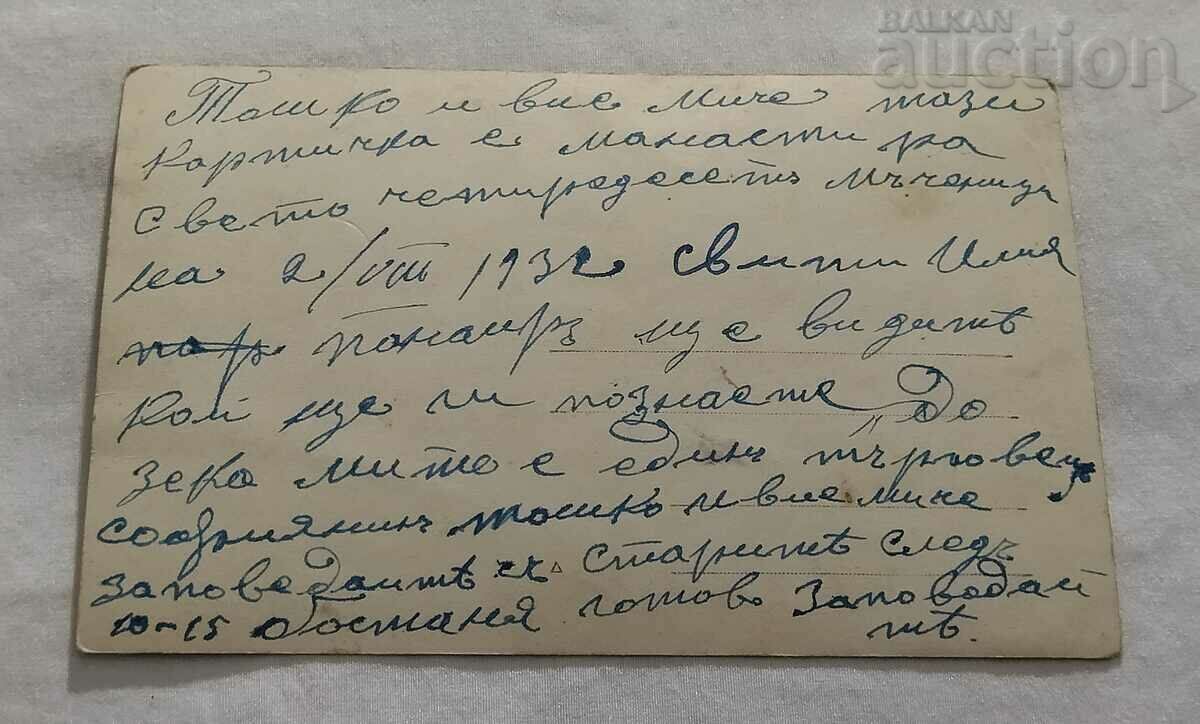 BALKAN
auction
Тошко и вие Миче тази
картичка е манастира
Свето четиредесетъ мъченицi
на 2/VIII 1932 Свити Илия
пар панаиръ ще видитѣ
кой ще ги познаете „До
зека мито е единъ търговецъ
софиянинъ тошко и вие миче
заповедаитѣ съ старитѣ следъ
10-15 остания готово Заповодай
тѣ.